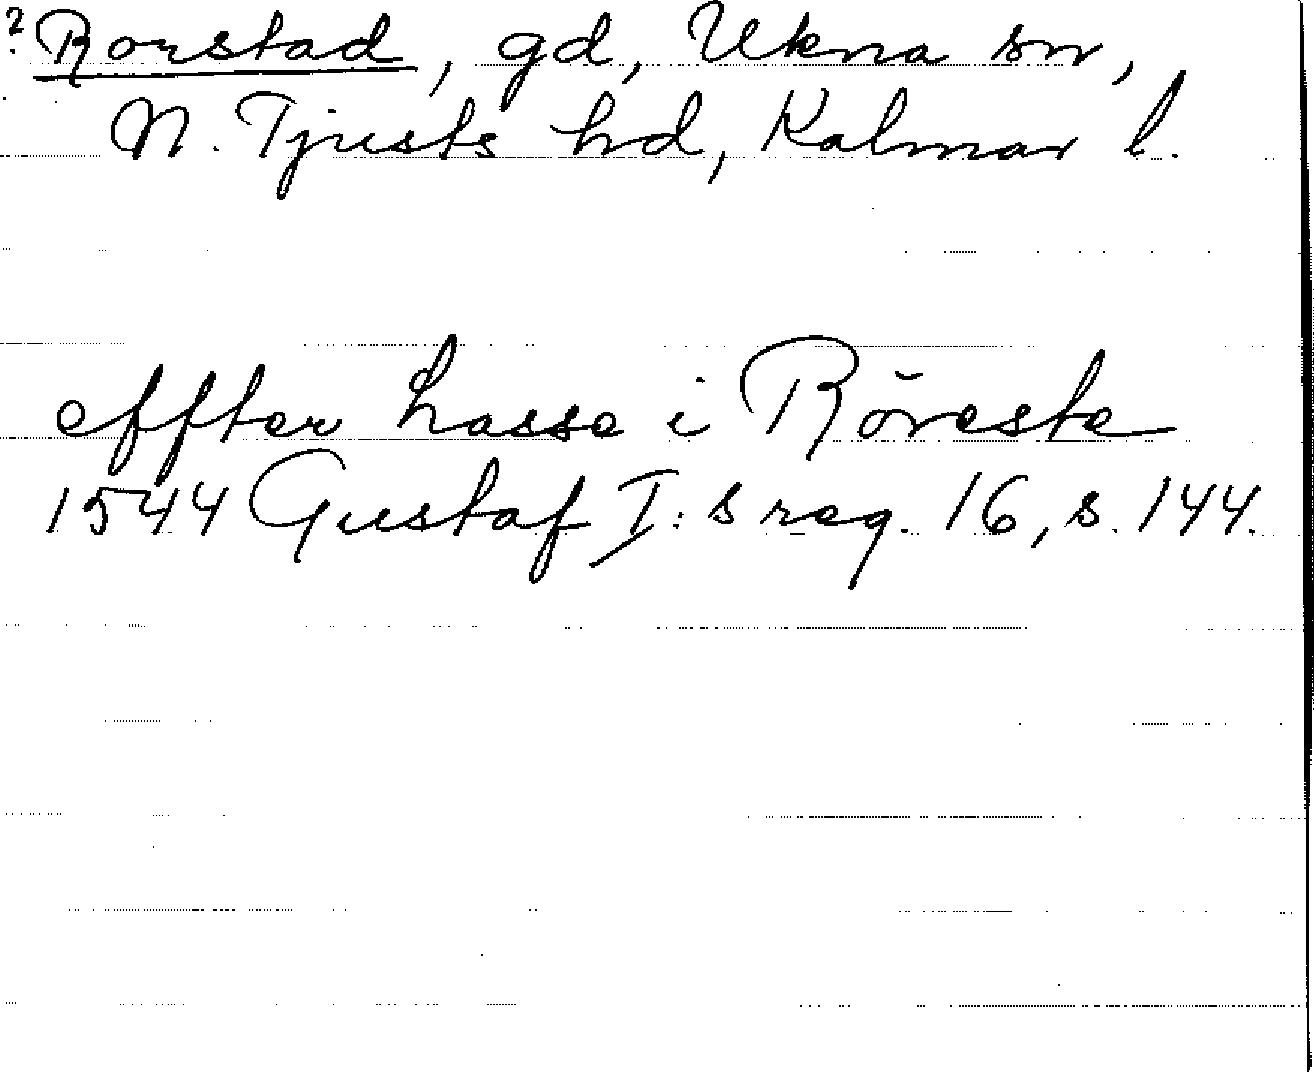 ? Rorstad, gd, Ukna sn,
N. Tjusts hd, Kalmar l.
effter Lasse i Röreste
1544 Gustaf I:s reg. 16, s. 144.